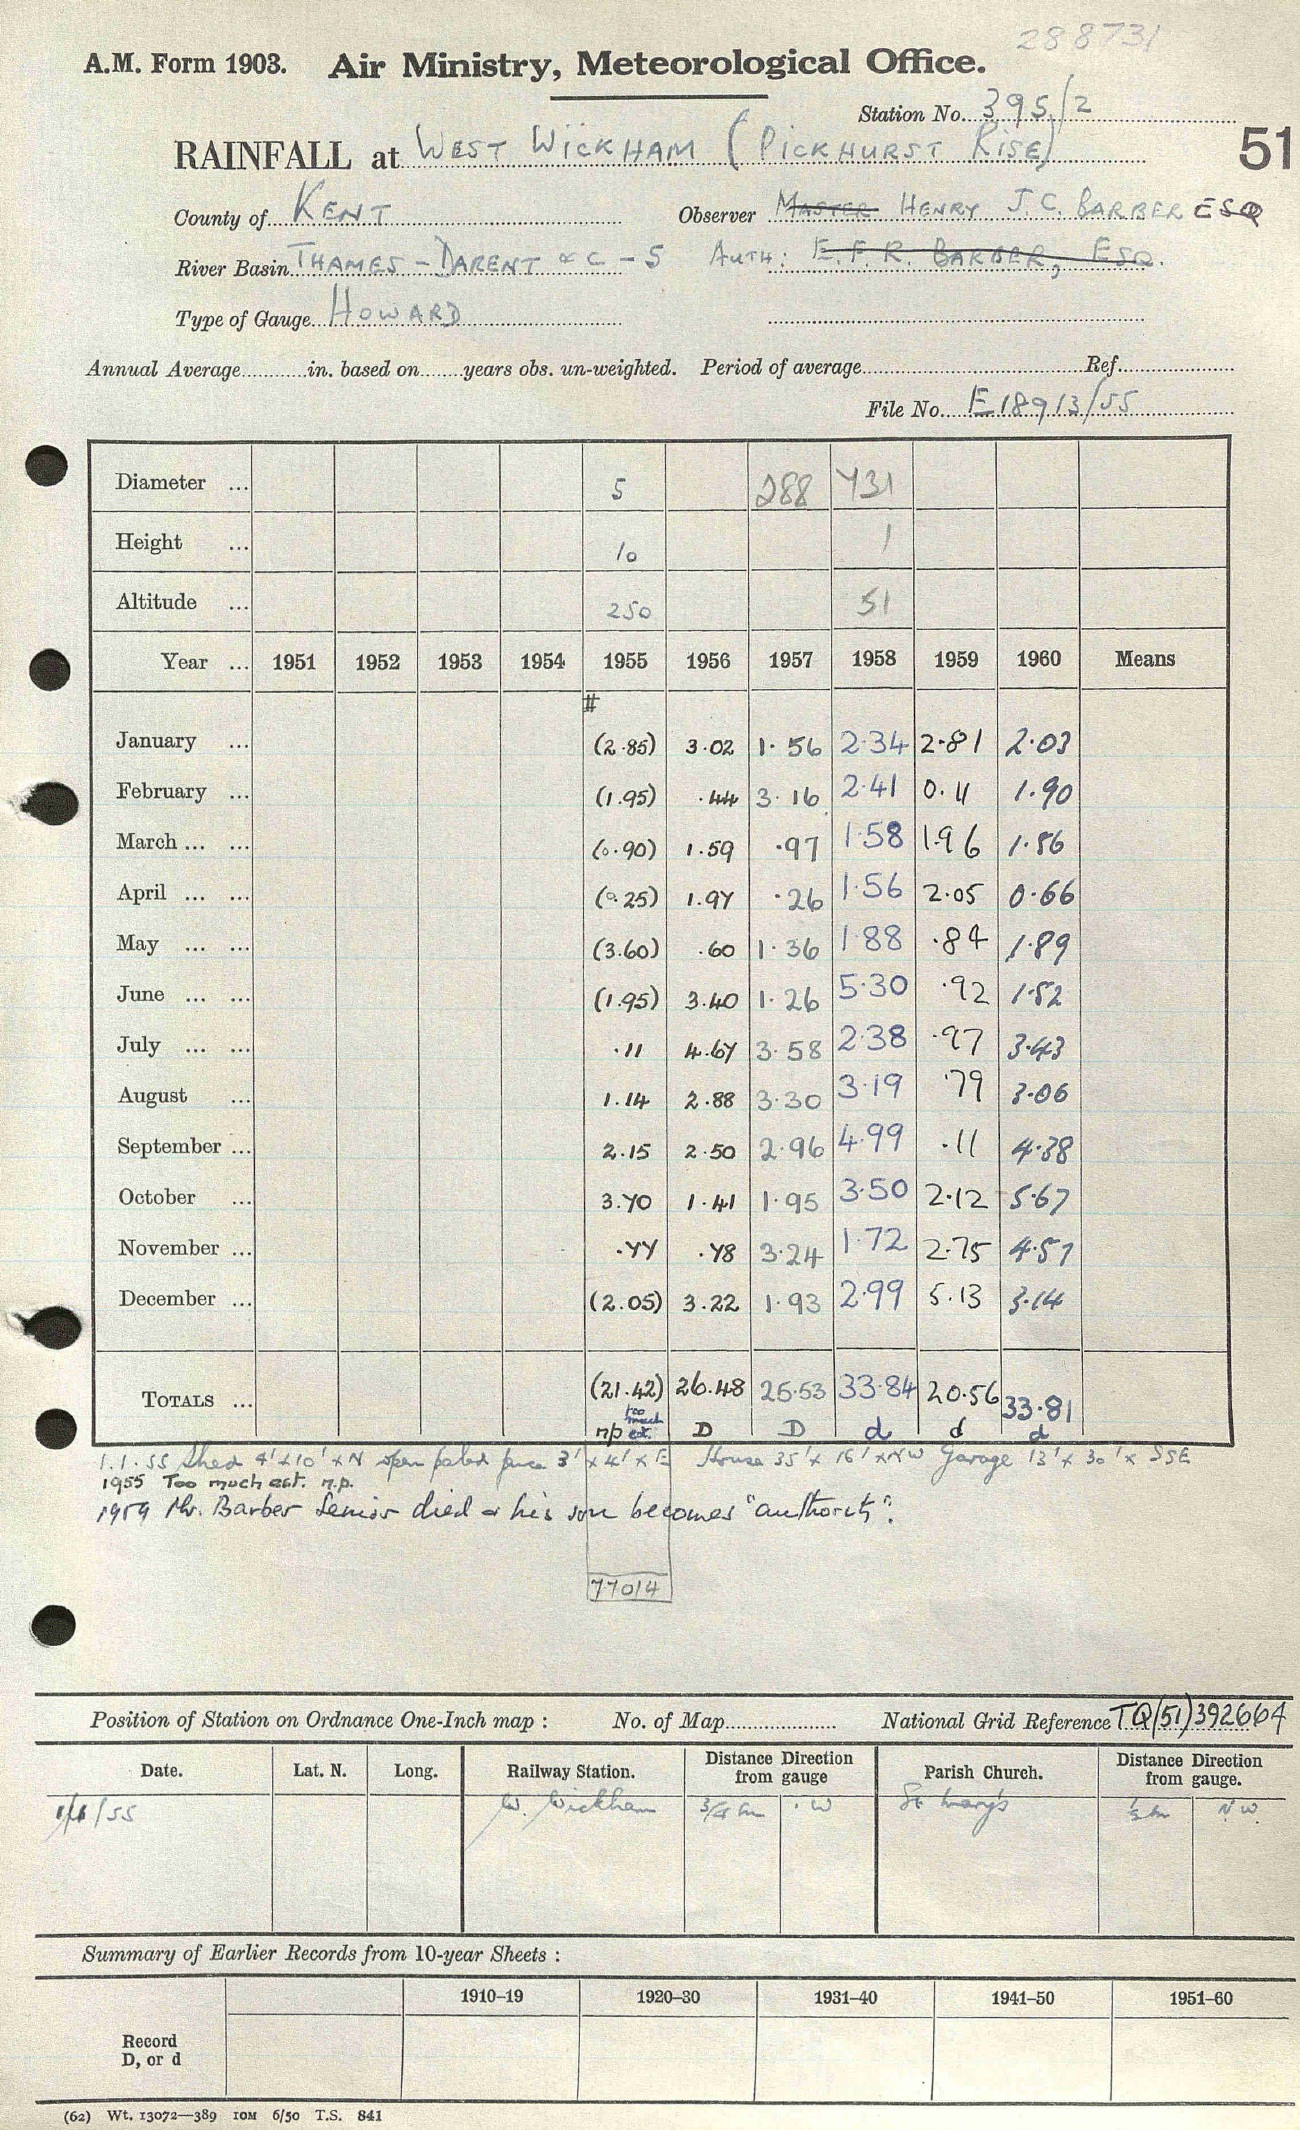 288731
A.M. Form 1903. Air Ministry, Meteorological Office.
Station No. 395/2
RAINFALL at WEST WICKHAM (PICKHURST RISE)
51
County of KENT Observer MASTER HENRY J.C. BARBER ESQ
River Basin THAMES - DARENT &C - 5 AUTH: E.F.R. BARBER, ESQ.
Type of Gauge HOWARD
Annual Average in. based on years obs. un-weighted. Period of average Ref.
File No. E18913/55
Diameter ... 5 288 731
Height ... 10 1
Altitude ... 250 51
Year ... 1951 1952 1953 1954 1955 1956 1957 1958 1959 1960 Means
#
January ... (2.85) 3.02 1.56 2.34 2.81 2.03
February ... (1.95) .44 3.16 2.41 0.11 1.90
March ... ... (0.90) 1.59 .97 1.58 1.96 1.56
April ... ... (0.25) 1.97 .26 1.56 2.05 0.66
May ... ... (3.60) .60 1.36 1.88 .84 1.89
June ... ... (1.95) 3.40 1.26 5.30 .92 1.52
July ... ... .11 4.67 3.58 2.38 .97 3.43
August ... 1.14 2.88 3.30 3.19 .79 3.06
September ... 2.15 2.50 2.96 4.99 .11 4.38
October ... 3.70 1.41 1.95 3.50 2.12 5.67
November ... .77 .78 3.24 1.72 2.75 4.57
December ... (2.05) 3.22 1.93 2.99 5.13 3.14
TOTALS ... (21.42) 26.48 25.53 33.84 20.56 33.81
np too much est. D D d d d
1.1.55 Shed 4'x10'xN open paled fence 3'x4'xE House 35'x16'xNW Garage 13'x30'x SSE
1955 Too much est. n.p.
1959 Mr. Barber Senior died & his son becomes "authority".
77014
Position of Station on Ordnance One-Inch map : No. of Map National Grid Reference TQ(51)392664
Date. Lat. N. Long. Railway Station. Distance Direction from gauge Parish Church. Distance Direction from gauge.
1/1/55 W. Wickham 3/4 m W St Mary's 1/2 m NW
Summary of Earlier Records from 10-year Sheets :
1910–19 1920–30 1931–40 1941–50 1951–60
Record
D, or d
(62) Wt. 13072—389 10M 6/50 T.S. 841